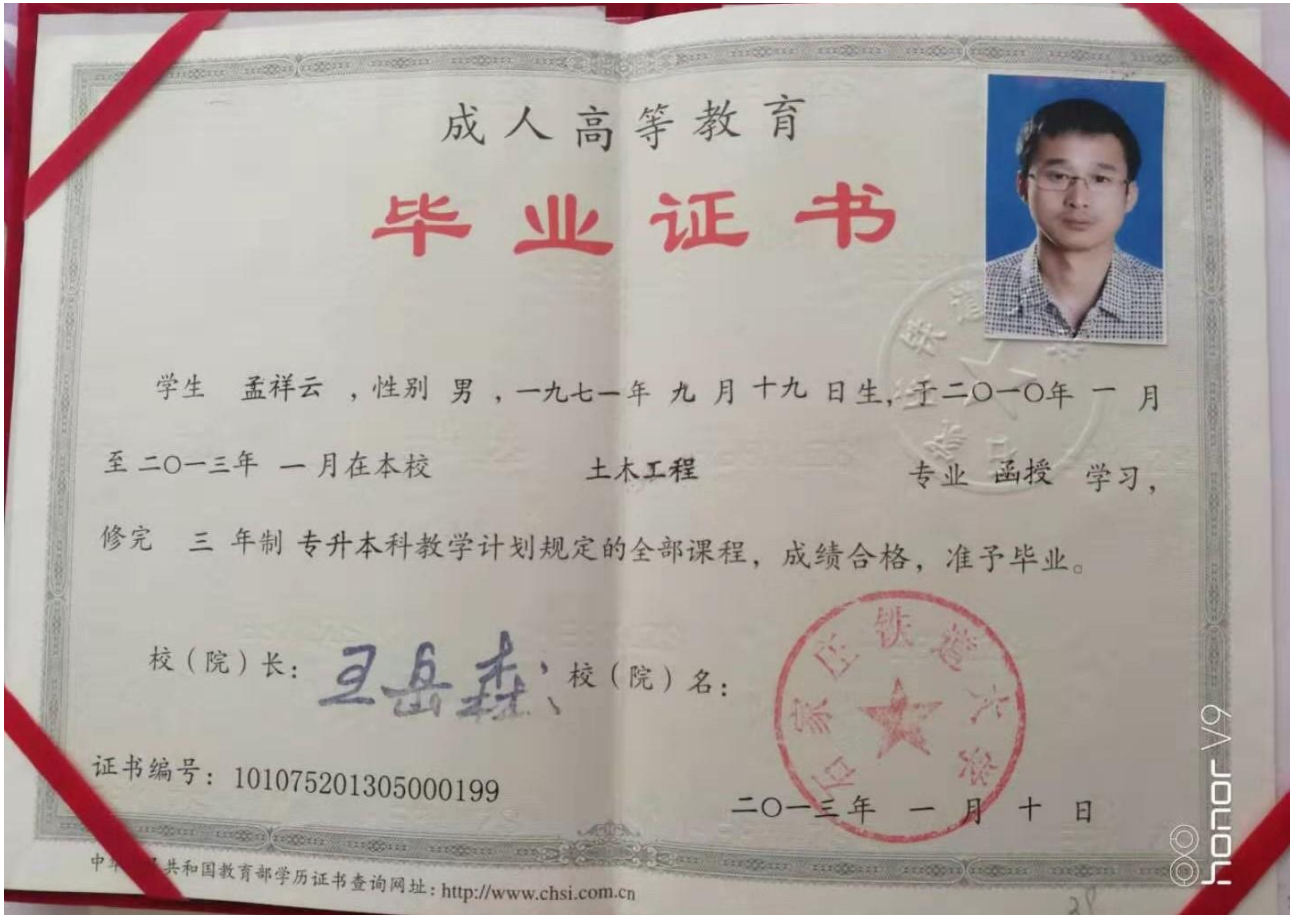 成人高等教育
毕业证书
学生 孟祥云 ，性别 男 ，一九七一年 九 月 十九 日生，于二〇一〇年 一 月
至 二〇一三年 一 月在本校 土木工程 专业 函授 学习，
修完 三 年制 专升本科教学计划规定的全部课程，成绩合格，准予毕业。
校（院）长：王岳森 校（院）名：
石家庄铁道大学
证书编号：101075201305000199
二〇一三年 一 月 十 日
中华 共和国教育部学历证书查询网址：http://www.chsi.com.cn
honor V9